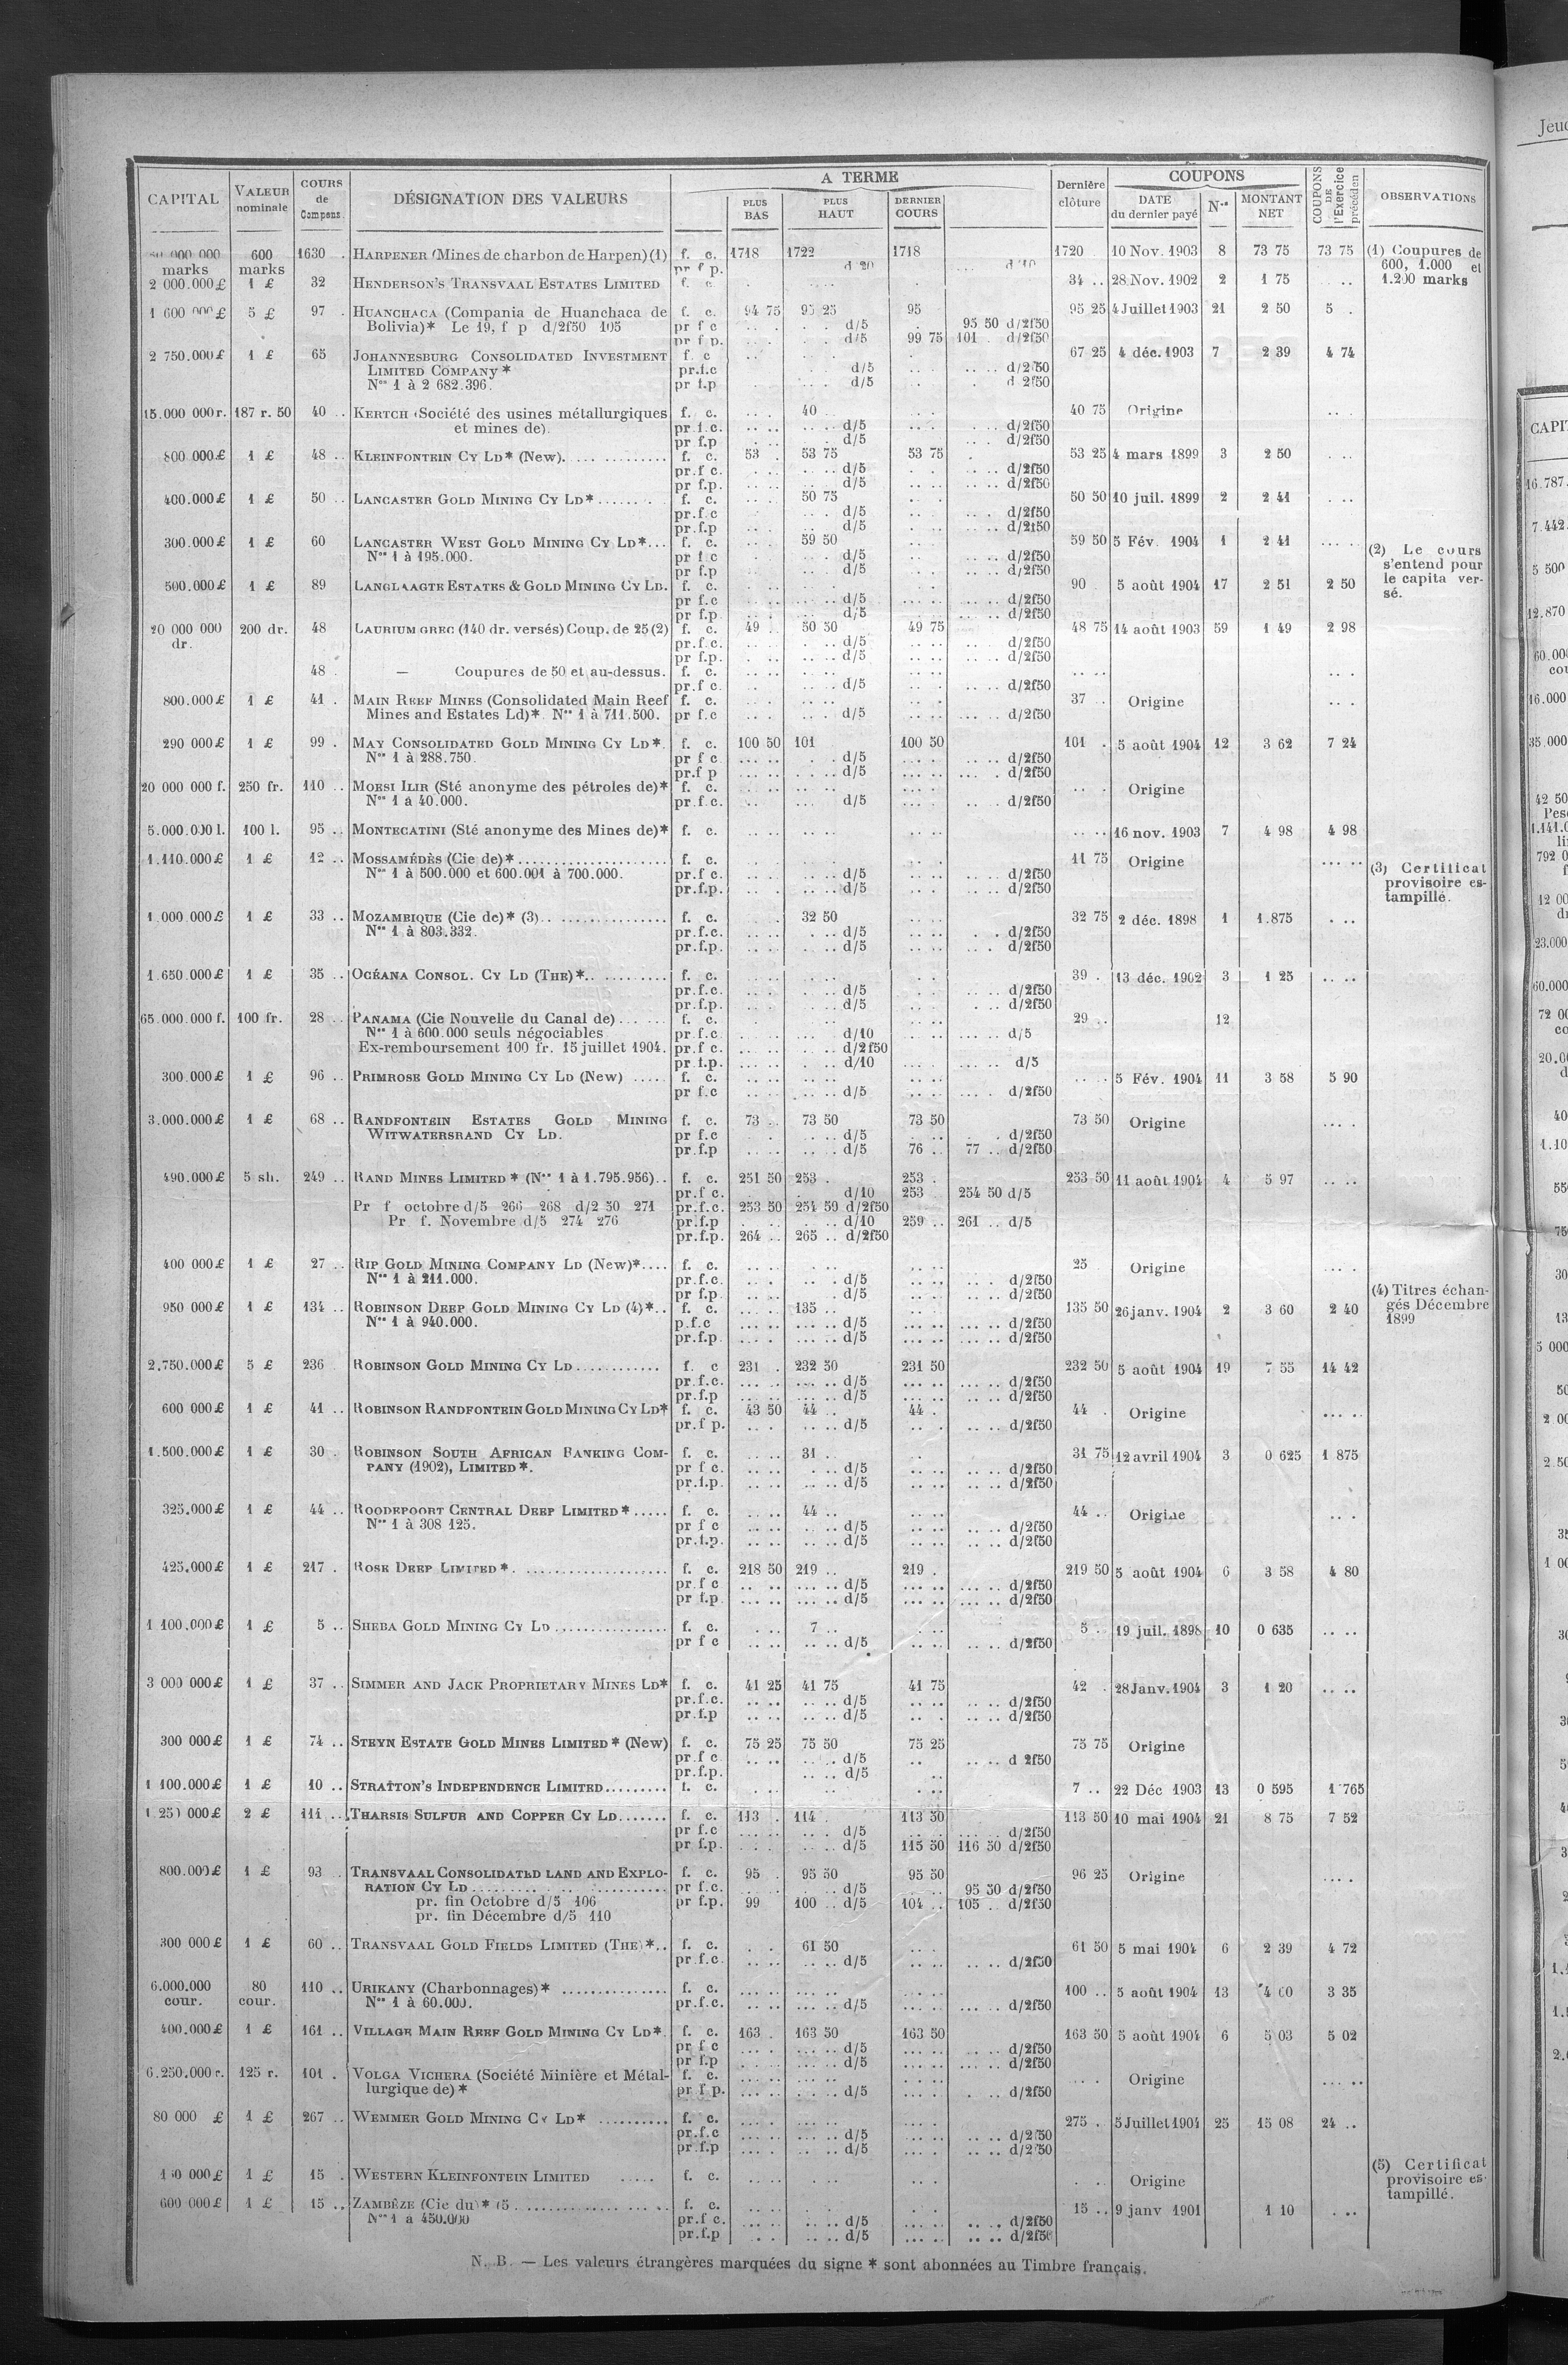 CAPITAL VALEUR nominale COURS de Compens. DÉSIGNATION DES VALEURS A TERME PLUS BAS PLUS HAUT DERNIER COURS Dernière clôture COUPONS DATE du dernier payé Nos MONTANT NET COUPONS DE l'Exercice précéden OBSERVATIONS
000 000 600 1630 . HARPENER (Mines de charbon de Harpen) (1) f. c. 1718 1722 1718 1720 10 Nov. 1903 8 73 75 73 75 (1) Coupures de
marks marks pr f p. d 20 d 10 600, 1.000 et
2 000.000 £ 1 £ 32 HENDERSON'S TRANSVAAL ESTATES LIMITED f. c. 34 .. 28 Nov. 1902 2 1 75 . .. 1.200 marks
1 600 000 £ 5 £ 97 . HUANCHACA (Compania de Huanchaca de f. c. 94 75 95 25 95 95 25 4 Juillet 1903 21 2 50 5 .
Bolivia)* Le 19, f p d/2f50 105 pr f c d/5 95 50 d/2f50
pr f p. d/5 99 75 101 . d/2f50
2 750.000 £ 1 £ 65 JOHANNESBURG CONSOLIDATED INVESTMENT f. c 67 25 4 déc. 1903 7 2 39 4 74
LIMITED COMPANY * pr.f.c d/5 d/2 50
Nos 1 à 2 682.396. pr f.p d/5 d 2f50
15.000 000 r. 187 r. 50 40 .. KERTCH (Société des usines métallurgiques f. c. 40 40 75 Origine
et mines de). pr f.c. d/5 d/2f50
pr f.p d/5 d/2f50
800 000 £ 1 £ 48 .. KLEINFONTEIN CY LD* (New). f. c. 53 . 53 75 53 75 53 25 4 mars 1899 3 2 50
pr.f c. d/5 d/2f50
pr f.p. d/5 d/2f50
400.000 £ 1 £ 50 .. LANCASTER GOLD MINING CY LD* f. c. 50 75 50 50 10 juil. 1899 2 2 41
pr.f c d/5 d/2f50
pr.f.p d/5 d/2f50
300.000 £ 1 £ 60 LANCASTER WEST GOLD MINING CY LD* f. c. 59 50 59 50 5 Fév. 1904 1 2 41 (2) Le cours
Nos 1 à 195.000. pr f c d/5 d/2f50 s'entend pour
pr f.p d/5 d/2f50 le capita ver-
500.000 £ 1 £ 89 LANGLAAGTE ESTATES & GOLD MINING CY LD. f. c. 90 . 5 août 1904 17 2 51 2 50 sé.
pr f.c d/5 d/2f50
pr f.p d/5 d/2f50
20 000 000 200 dr. 48 LAURIUM GREC (140 dr. versés) Coup. de 25 (2) f. c. 49 . 50 50 49 75 48 75 14 août 1903 59 1 49 2 98
dr. pr.f.c. d/5 d/2f50
pr f.p. d/5 d/2f50
48 . — Coupures de 50 et au-dessus. f. c.
pr.f c. d/5 d/2f50
800.000 £ 1 £ 41 . MAIN REEF MINES (Consolidated Main Reef f. c. 37 .. Origine
Mines and Estates Ld)*. Nos 1 à 711.500. pr f.c d/5 d/2f50
290 000 £ 1 £ 99 . MAY CONSOLIDATED GOLD MINING CY LD*. f. c. 100 50 101 100 50 101 . 5 août 1904 12 3 62 7 24
Nos 1 à 288.750. pr f c d/5 d/2f50
pr.f p d/5 d/2f50
20 000 000 f. 250 fr. 110 .. MOESI ILIR (Sté anonyme des pétroles de)* f. c. Origine
Nos 1 à 40.000. pr.f.c. d/5 d/2f50
5.000.000 l. 100 l. 95 .. MONTECATINI (Sté anonyme des Mines de)* f. c. 16 nov. 1903 7 4 98 4 98
1.110.000 £ 1 £ 12 .. MOSSAMÉDÈS (Cie de) * f. c. 11 75 Origine (3) Certificat
Nos 1 à 500.000 et 600.001 à 700.000. pr.f c. d/5 d/2f50 provisoire es-
pr.f.p. d/5 d/2f50 tampillé.
1.000 000 £ 1 £ 33 .. MOZAMBIQUE (Cie de)* (3) f. c. 32 50 32 75 2 déc. 1898 1 1.875
Nos 1 à 803.332. pr.f.c. d/5 d/2f50
pr.f.p. d/5 d/2f50
1.650.000 £ 1 £ 35 .. OCÉANA CONSOL. CY LD (THE)* f. c. 39 . 13 déc. 1902 3 1 25
pr.f.c. d/5 d/2f50
pr.f.p. d/5 d/2f50
65.000.000 f. 100 fr. 28 .. PANAMA (Cie Nouvelle du Canal de) f. c. 29 .. 12
Nos 1 à 600.000 seuls négociables pr.f.c. d/10 d/5
Ex-remboursement 100 fr. 15 juillet 1904. pr.f c. d/2f50
pr f.p. d/10 d/5
300.000 £ 1 £ 96 .. PRIMROSE GOLD MINING CY LD (New) f. c. 5 Fév. 1904 11 3 58 5 90
pr f.c d/5 d/2f50
3.000.000 £ 1 £ 68 .. RANDFONTEIN ESTATES GOLD MINING f. c. 73 .. 73 50 73 50 73 50 Origine
WITWATERSRAND CY LD. pr f.c d/5 d/2f50
pr.f.p d/5 76 .. 77 .. d/2f50
490.000 £ 5 sh. 249 .. RAND MINES LIMITED * (Nos 1 à 1.795.956) f. c. 251 50 253 . 253 . 253 50 11 août 1904 4 5 97
pr.f c. d/10 253 254 50 d/5
Pr f octobre d/5 266 268 d/2 50 271 pr.f.c. 253 50 254 50 d/2f50
Pr. f. Novembre d/5 274 276 pr.f.p d/10 259 .. 261 .. d/5
pr.f.p. 264 .. 265 .. d/2f50
400 000 £ 1 £ 27 .. RIP GOLD MINING COMPANY LD (New)* f. c. 25 Origine
Nos 1 à 211.000. pr.f.c. d/5 d/2f50 (4) Titres échan-
pr f.p. d/5 d/2f50 gés Décembre
950 000 £ 1 £ 134 .. ROBINSON DEEP GOLD MINING CY LD (4)* f. c. 135 .. 135 50 26 janv. 1904 2 3 60 2 40 1899
Nos 1 à 940.000. p.f.c d/5 d/2f50
pr.f.p. d/5 d/2f50
2.750.000 £ 5 £ 236 ROBINSON GOLD MINING CY LD f. c 231 . 232 50 231 50 232 50 5 août 1904 19 7 55 14 42
pr.f.c. d/5 d/2f50
pr.f.p d/5 d/2f50
600 000 £ 1 £ 41 .. ROBINSON RANDFONTEIN GOLD MINING CY LD* f. c. 43 50 44 .. 44 . 44 . Origine
pr.f p. d/5 d/2f50
1.500.000 £ 1 £ 30 . ROBINSON SOUTH AFRICAN BANKING COM- f. c. 31 .. 31 75 12 avril 1904 3 0 625 1 875
PANY (1902), LIMITED *. pr f c. d/5 d/2f50
pr.f.p. d/5 d/2f50
325.000 £ 1 £ 44 .. ROODEPOORT CENTRAL DEEP LIMITED * f. c. 44 .. 44 .. Origine
Nos 1 à 308 125. pr f c d/5 d/2f50
pr.f.p. d/5 d/2f50
425.000 £ 1 £ 217 . ROSE DEEP LIMITED *. f. c. 218 50 219 .. 219 . 219 50 5 août 1904 6 3 58 4 80
pr.f c d/5 d/2f50
pr f.p d/5 d/2f50
1 100.000 £ 1 £ 5 .. SHEBA GOLD MINING CY LD f. c. 7 .. 5 .. 19 juil. 1898 10 0 635
pr f c d/5 d/2f50
3 000 000 £ 1 £ 37 .. SIMMER AND JACK PROPRIETARY MINES LD* f. c. 41 25 41 75 41 75 42 . 28 Janv. 1904 3 1 20
pr.f.c. d/5 d/2f50
pr.f.p d/5 d/2f50
300 000 £ 1 £ 74 .. STEYN ESTATE GOLD MINES LIMITED * (New) f. c. 75 25 75 50 75 25 75 75 Origine
pr.f c d/5 d 2f50
pr.f.p. d/5
1 100.000 £ 1 £ 10 .. STRATTON'S INDEPENDENCE LIMITED f. c. 7 .. 22 Déc 1903 13 0 595 1 765
1 250 000 £ 2 £ 111 .. THARSIS SULFUR AND COPPER CY LD f. c. 113 . 114 . 113 50 113 50 10 mai 1904 21 8 75 7 52
pr f.c d/5 d/2f50
pr f.p. d/5 115 50 116 50 d/2f50
800.000 £ 1 £ 93 . TRANSVAAL CONSOLIDATED LAND AND EXPLO- f. c. 95 . 95 50 95 50 96 25 Origine
RATION CY LD pr f.c. d/5 95 50 d/2f50
pr. fin Octobre d/5 106 pr f.p. 99 100 .. d/5 104 .. 105 .. d/2f50
pr. fin Décembre d/5 110
300 000 £ 1 £ 60 .. TRANSVAAL GOLD FIELDS LIMITED (THE) * f. c. 61 50 61 50 5 mai 1904 6 2 39 4 72
pr.f.c. d/5 d/2f50
6.000.000 80 110 .. URIKANY (Charbonnages) * f. c. 100 .. 5 août 1904 13 4 00 3 35
cour. cour. Nos 1 à 60.000. pr.f.c. d/5 d/2f50
400.000 £ 1 £ 161 .. VILLAGE MAIN REEF GOLD MINING CY LD*. f. c. 163 . 163 50 163 50 163 50 5 août 1904 6 5 03 5 02
pr f c d/5 d/2f50
pr f.p d/5 d/2f50
6.250.000 r. 125 r. 101 . VOLGA VICHERA (Société Minière et Métal- f. c. Origine
lurgique de) * pr f p. d/5 d/2f50
80 000 £ 1 £ 267 .. WEMMER GOLD MINING CY LD* f. c. 275 . 5 Juillet 1904 25 15 08 24 ..
pr.f.c d/5 d/2 50
pr.f.p d/5 d/2 50
1 £ 15 . WESTERN KLEINFONTEIN LIMITED f. c. Origine (5) Certificat
provisoire es-
600 000 £ 1 £ 15 .. ZAMBÈZE (Cie du) * (5 f. c. 15 .. 9 janv 1901 1 10 tampillé.
Nos 1 a 450.000 pr.f c. d/5 d/2f50
pr.f.p d/5 d/2f50
N. B. — Les valeurs étrangères marquées du signe * sont abonnées au Timbre français.